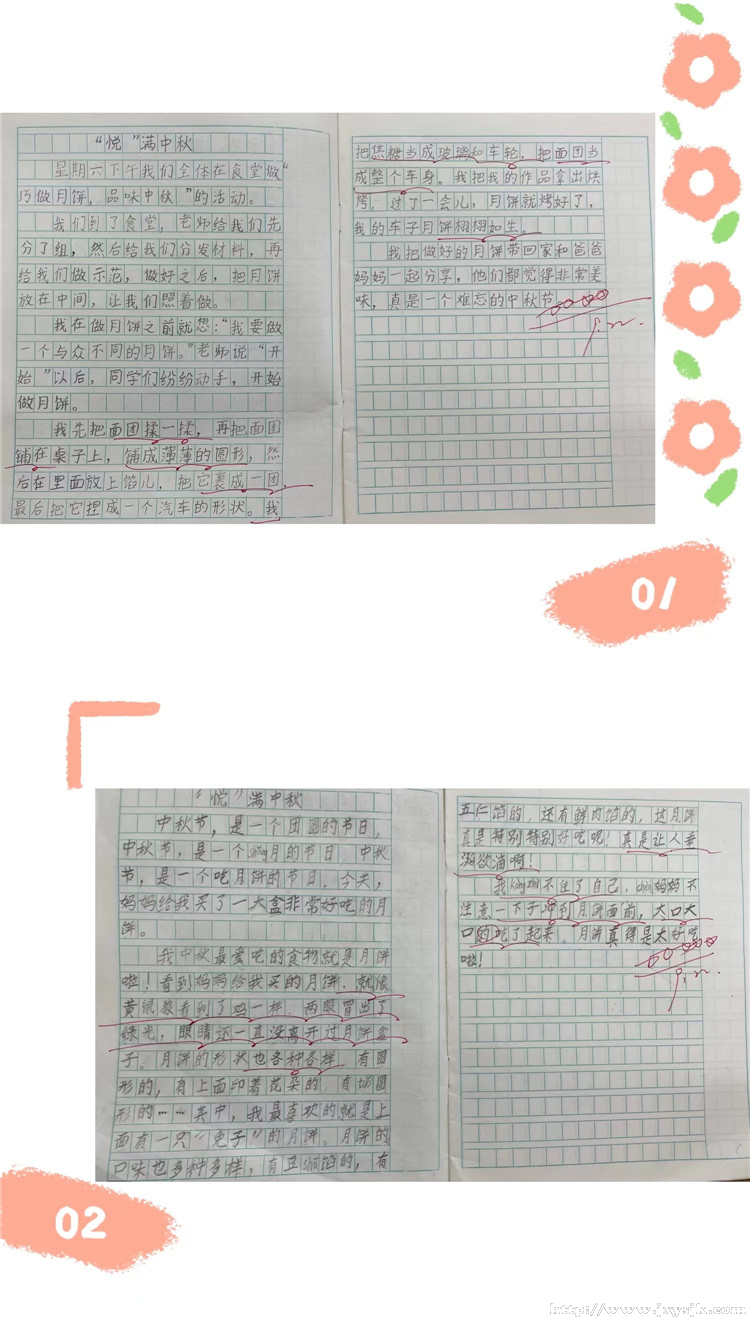 “悦”满中秋
星期六下午我们全体在食堂做“
巧做月饼，品味中秋”的活动。
我们到了食堂，老师给我们先
分了组，然后给我们分发材料，再
给我们做示范，做好之后，把月饼
放在中间，让我们照着做。
我在做月饼之前就想：“我要做
一个与众不同的月饼。”老师说“开
始”以后，同学们纷纷动手，开始
做月饼。
我先把面团揉一揉，再把面团
铺在桌子上，铺成薄薄的圆形，然
后在里面放上馅儿，把它裹成一团，
最后把它捏成一个汽车的形状。我
把焦糖当成玻璃和车轮，把面团当
成整个车身。我把我的作品拿出烘
烤，过了一会儿，月饼就烤好了，
我的车子月饼栩栩如生。
我把做好的月饼带回家和爸爸
妈妈一起分享，他们都觉得非常美
味，真是一个难忘的中秋节。
01
“悦”满中秋
中秋节，是一个团圆的节日，
中秋节，是一个shǎng月的节日，中秋
节，是一个吃月饼的节日。今天，
妈妈给我买了一大盒非常好吃的月
饼。
我中秋最爱吃的食物就是月饼
啦！看到妈妈给我买的月饼，就像
黄鼠狼看到了鸡一样，两眼冒出了
绿光，眼睛还一直没离开过月饼盒
子。月饼的形状也各种各样，有圆
形的，有上面印着花朵的，有椭圆
形的……其中，我最喜欢的就是上
面有一只“兔子”的月饼。月饼的
口味也多种多样，有豆shā馅的，有
五仁馅的，还有鲜肉馅的，这月饼
真是特别特别好吃呢！真是让人垂
涎欲滴啊！
我kòng zhì不住了自己，chèn妈妈不
注意一下子冲到月饼面前，大口大
口的吃了起来。月饼真得是太好吃
啦！
02
http://www.jxysjk.com